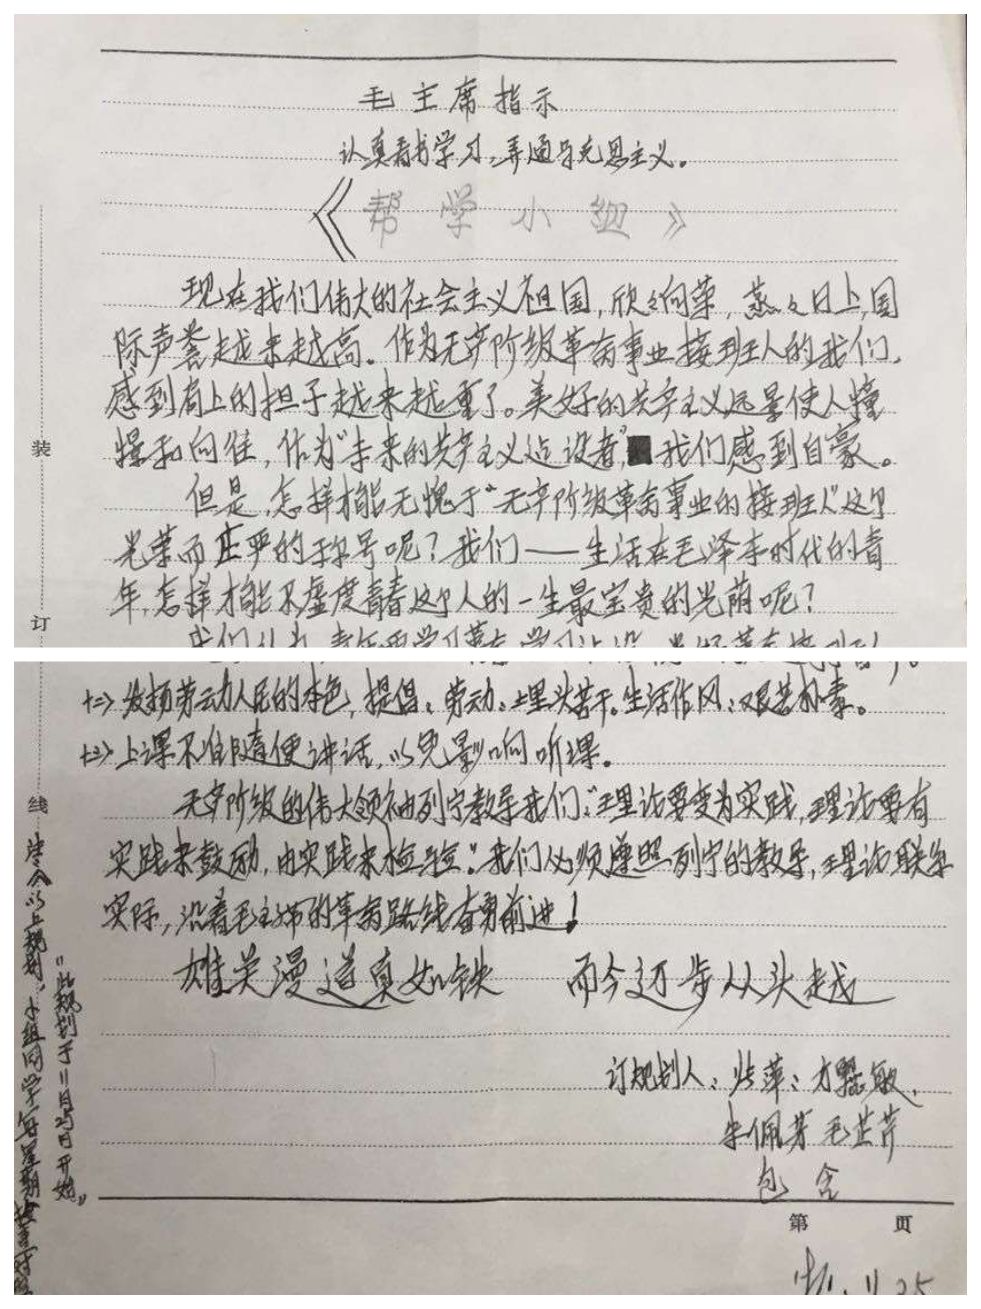 毛主席指示
认真看书学习,弄通马克思主义。
《帮学小组》
现在我们伟大的社会主义祖国,欣々向荣,蒸々日上,国
际声誉越来越高。作为无产阶级革命事业接班人的我们,
感到肩上的担子越来越重了。美好的共产主义远景使人憧
憬和向往,作为"未来的共产主义建设者",我们感到自豪。
但是,怎样才能无愧于"无产阶级革命事业的接班人"这个
光荣而庄严的称号呢?我们——生活在毛泽东时代的青
年,怎样才能不虚度青春这个人的一生最宝贵的光荫呢?
我们认为,青年要学习革命
十二>发扬劳动人民的本色,提倡:劳动:埋头苦干。生活作风:艰苦朴素。
十三>上课不准随便讲话,以免影响听课。
无产阶级的伟大领袖列宁教导我们:"理论要变为实践,理论要有
实践来鼓励,由实践来检验。"我们必须遵照列宁的教导,理论联系
实际,沿着毛主席的革命路线奋勇前进!
雄关漫道真如铁 而今迈步从头越
订规划人:张萍:方 敏、
李佩芳 毛芷芹
包含
第 页
11.25
装
订
线
"此规划于11月25日开始。"
以上规划"小组同学每星期